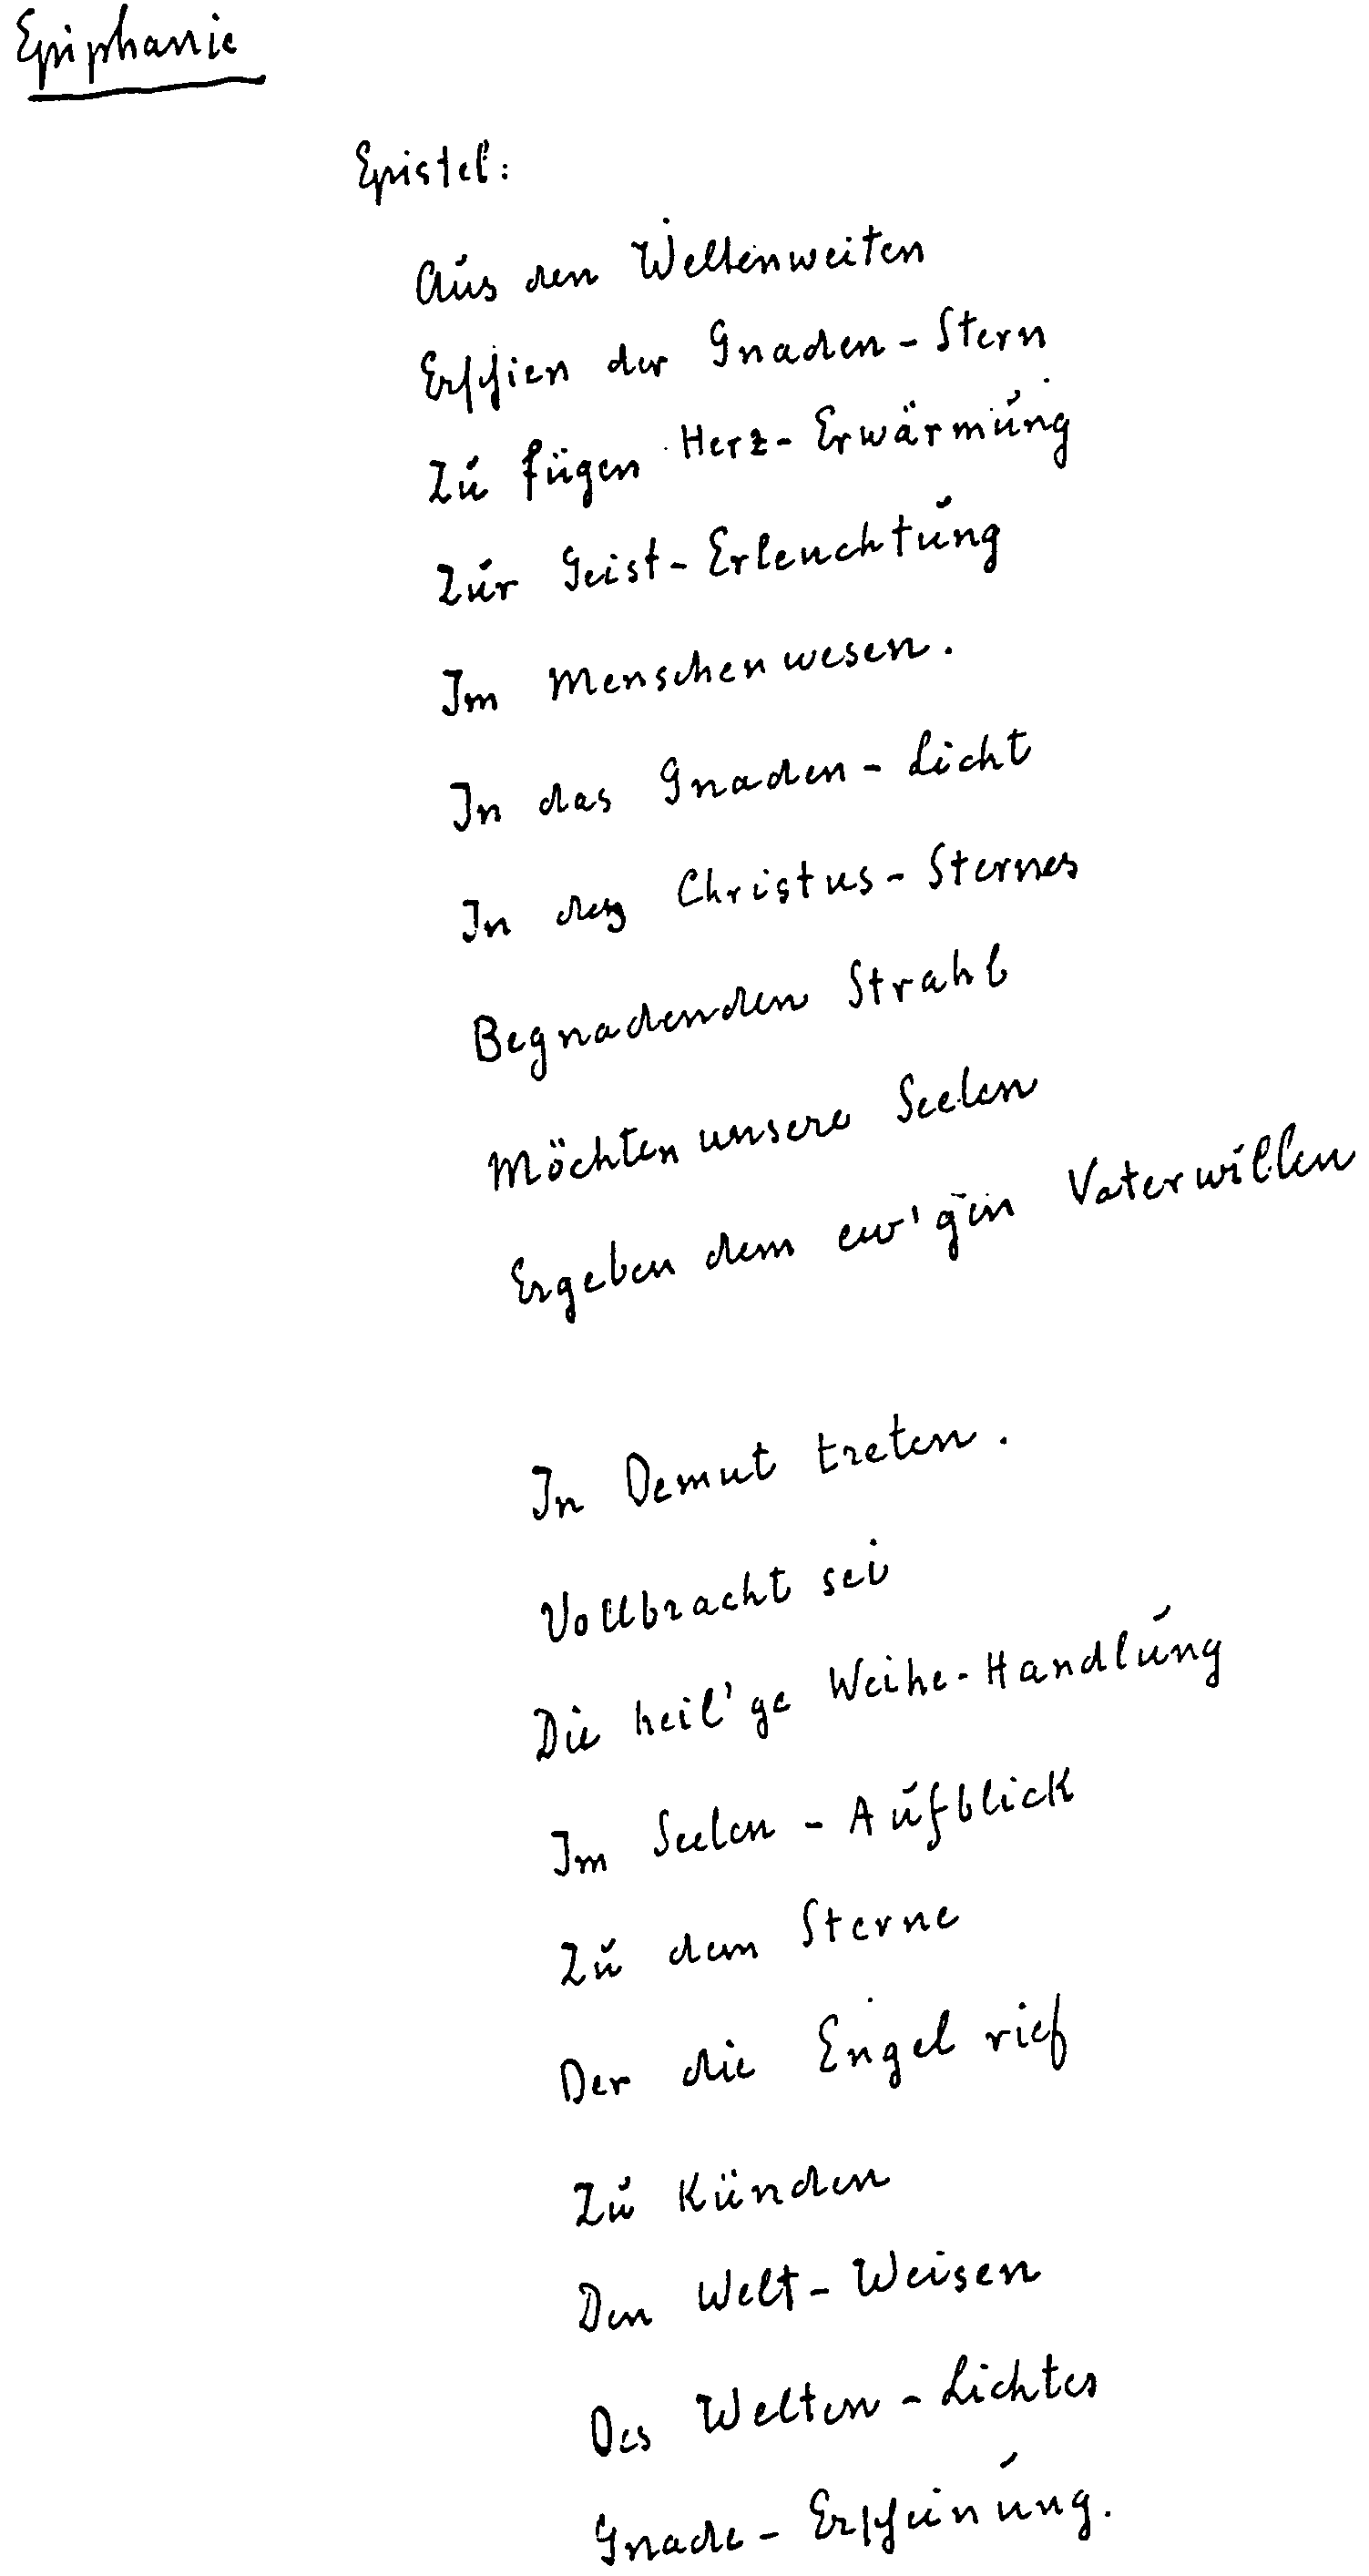 Epiphanie
Epistel:
Aus den Weltenweiten
Erschien der Gnaden-Stern
Zu fügen Herz-Erwärmung
Zur Geist-Erleuchtung
Im Menschenwesen.
In das Gnaden-Licht
In des Christus-Sternes
Begnadenden Strahl
Möchten unsere Seelen
Ergeben dem ew'gen Vaterwillen
In Demut treten.
Vollbracht sei
Die heil'ge Weihe-Handlung
Im Seelen-Aufblick
Zu dem Sterne
Der die Engel rief
Zu Künden
Den Welt-Weisen
Des Welten-Lichtes
Gnade-Erscheinung.